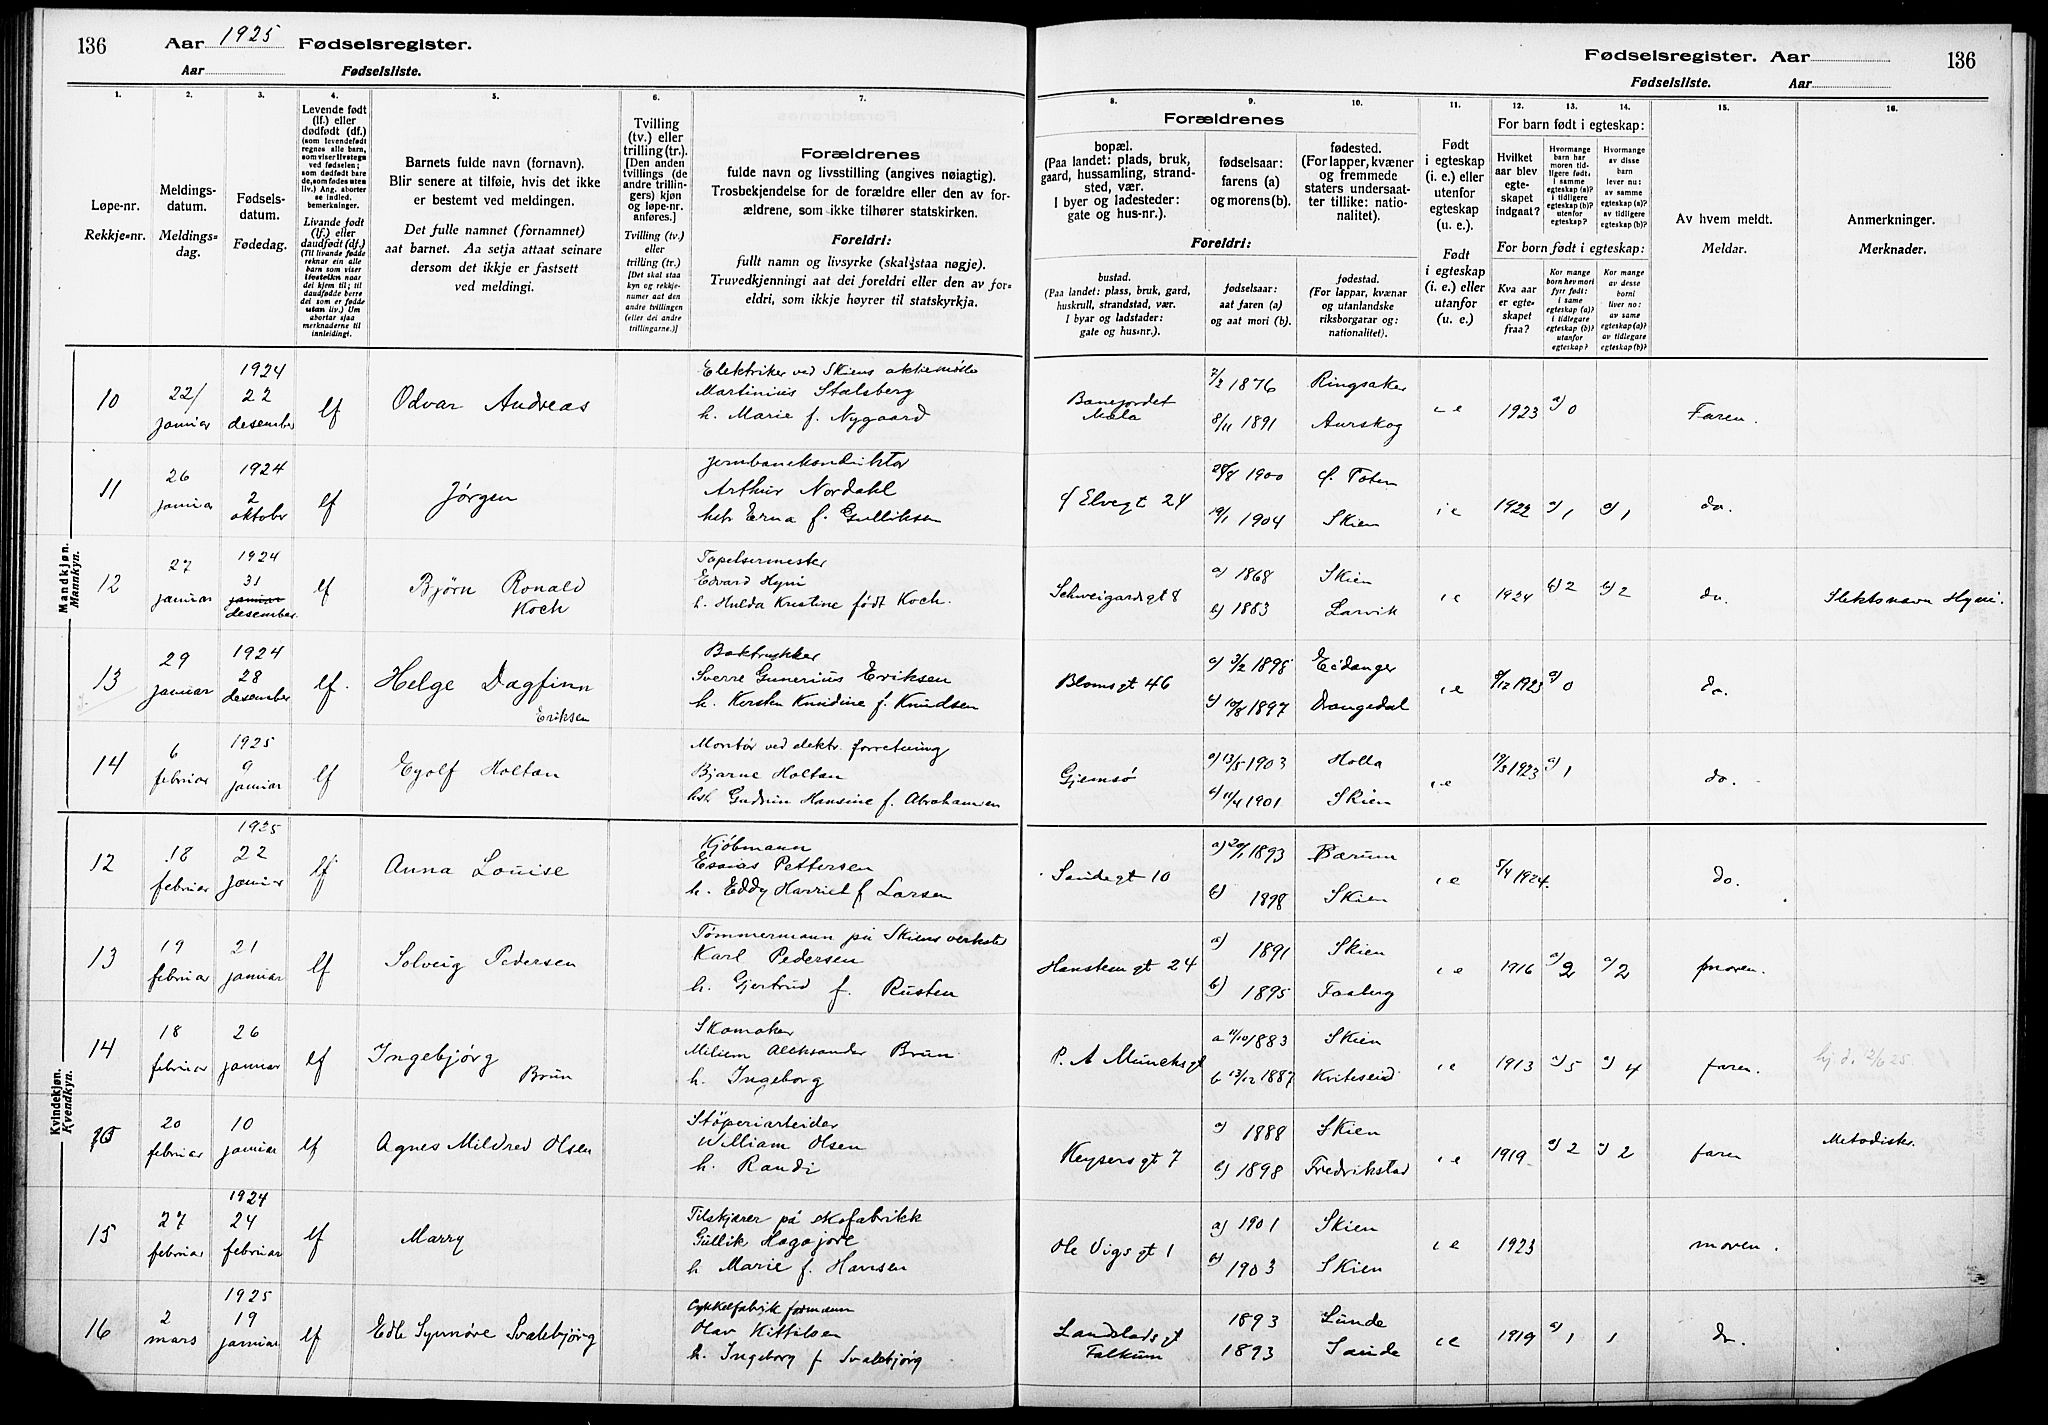 136 Aar 1925 Fødselsregister.
Aar Fødselsliste.
Fødselsregister. Aar 136
Fødselsliste. Aar
1. 2. 3. 4. 5. 6. 7. 8. 9. 10. 11. 12. 13. 14. 15. 16.
Løpe-nr.
Rekkje-nr.
Meldings-
datum.
Meldings-
dag.
Fødsels-
datum.
Fødedag.
Levende født
(lf.) eller
dødfødt (df.)
(som levendefødt
regnes alle barn,
som viser livstegn
ved fødselen;
som dødfødt bare
de, som fødes uten
liv.) Ang. aborter
se indled.
bemerkninger.
Livande født
(lf.) eller
daudfødt (df.)
(Til livande fødde
reknar ein alle
barn som viser
livsteikn naar
dei kjem til; til
daudfødde berre
dei som er fødde
utan liv.) Um
abortar sjaa
merknaderne til
innleidingi.
Barnets fulde navn (fornavn).
Blir senere at tilføie, hvis det ikke
er bestemt ved meldingen.
Det fulle namnet (fornamnet)
aat barnet. Aa setja attaat seinare
dersom det ikkje er fastsett
ved meldingi.
Tvilling
(tv.) eller
trilling (tr.).
[Den anden
tvillings (de
andre trillin-
gers) kjøn
og løpe-nr.
anføres.]
Tvilling (tv.)
eller
trilling (tr.)
[Det skal staa
kyn og rekkje-
numer aat den
andre tvillingen
(eller dei andre
trillingarne.)]
Forældrenes
fulde navn og livsstilling (angives nøiagtig).
Trosbekjendelse for de forældre eller den av for-
ældrene, som ikke tilhører statskirken.
Foreldri:
fullt namn og livsyrke (skal staa nøgje).
Truvedkjenningi aat dei foreldri eller den av for-
eldri, som ikkje høyrer til statskyrkja.
Forældrenes
bopæl.
(Paa landet: plads, bruk,
gaard, hussamling, strand-
sted, vær.
I byer og ladesteder:
gate og hus-nr.).
fødselsaar:
farens (a)
og morens (b).
fødested.
(For lapper, kvæner
og fremmede
staters undersaat-
ter tillike: natio-
nalitet).
Foreldri:
bustad.
(Paa landet: plass, bruk, gard,
huskrull, strandstad, vær.
I byar og ladstader:
gate og hus-nr.).
fødselsaar:
aat faren (a)
og aat mori (b).
fødestad.
(For lappar, kvænar
og utanlandske
riksborgarar og:
nationalitet).
Født
i egteskap
(i. e.) eller
utenfor
egteskap
(u. e.).
Født
i egteskap
(i. e.) eller
utanfor
(u. e.)
For barn født i egteskap:
Hvilket
aar blev
egte-
skapet
indgaat?
Hvormange
barn har
moren tid-
ligere født:
i samme
egteskap (a)?
i tidligere
egteskap (b)?
utenfor
egteskap?
Hvormange
av disse
barn
lever nu:
av samme
egteskap (a)?
av tidligere
egteskap (b)?
For born født i egteskap:
Kva aar
er egte-
skapet
fraa?
Kor mange
born hev mori
fyrr født:
i same
egteskap (a)?
i tidlegare
egteskap (b)?
utanfor
egteskap?
Kor mange
av desse
borni
liver no:
av same
egteskap (a)?
av tidlegare
egteskap (b)?
Av hvem meldt.
Meldar.
Anmerkninger.
Merknader.
Mandkjøn.
Mannkyn.
10 22/ januar 1924 22 desember lf Odvar Andreas
Elektriker ved Skiens aktiemølle
Martinius Stalsberg
h. Marie f. Nygaard
Banejordet
Mæla
7/2 1876 Ringsaker
8/11 1891 Aurskog
i e 1923 a) 0 Faren.
11 26 januar 1924 2 oktober lf Jørgen
Jernbanekonduktør
Arthur Nordahl
hstr Erna f. Gulliksen
Elvegt 24
28/8 1900 Ø. Toten
19/1 1904 Skien
i e 1922 a) 1 a) 1 do.
12 27 januar 1924 31 januar desember lf Bjørn Ronald
Koch
Tapetsermester
Edvard Hyni
h. Hulda Kristine født Koch.
Schweigaardsgt 8
a) 1868 Skien
b) 1883 Larvik
i e 1924 b) 2 b) 2 do. Slektsnavn Hyni.
13 29 januar 1924 28 desember lf. Helge Dagfinn
Eriksen
Boktrykker
Sverre Gunerius Eriksen
h. Kirsten Knudine f. Knudsen
Blomsgt 46
a) 3/2 1898 Eidanger
b) 10/8 1897 Drangedal
i e 8/12 1923 a) 0 do.
14 6 februar 1925 9 januar lf Eyolf Holtan
Montør ved elektr. forretning
Bjarne Holtan
hst. Gudrun Hansine f. Abrahamsen
Gjemsø
a) 13/5 1903 Holla
b) 11/4 1901 Skien
i e 19/3 1923 a) 1 do.
Kvindekjøn.
Kvendkyn.
12 18 februar 1925 22 januar lf Anna Louise
Kjøbmann
Esaias Pettersen
h. Eddy Harriet f Larsen
Sandegt 10
a) 20/1 1893 Bærum
b) 1898 Skien
i e 5/4 1924. do.
13 19 februar 21 januar lf Solveig Pedersen
Tømmermann på Skiens verksted
Karl Pedersen
h. Gjertrud f. Rusten
Hansteensgt 24
a) 1891 Skien
b) 1895 Faaberg
i e 1916 a) 2 a) 2 moren.
14 18 februar 26 januar lf Ingebjørg
Brun
Skomaker
Miliem Aleksander Brun
h. Ingeborg
P. A Munchs gt
a 11/10 1883 Skien
b 13/12 1887 Kviteseid
i e 1913 a) 5 a) 4 faren. hj. d. 2/6 25.
15 20 februar 10 januar lf Agnes Mildred Olsen
Støperiarbeider
William Olsen
h. Randi
Keysersgt 7
a) 1888 Skien
b) 1898 Fredrikstad
i e 1919 a) 2 a) 2 faren Metodister.
15 27 februar 1924 24 februar lf Marry
Tilskjærer på skofabrikk
Gullik Hagajore
h Marie f. Hansen
Ole Vigs gt 1
a) 1901 Skien
b) 1903 Skien
i e 1923 moren.
16 2 mars 1925 19 januar lf Edle Synnøve Svalebjørg
Cykkelfabrik formann
Olav Kittilsen
h. Ingeborg f Svalebjørg
Landstadsgt
Falkum
1893 Lunde
1893 Sande
i e 1919 a) 1 1 do.